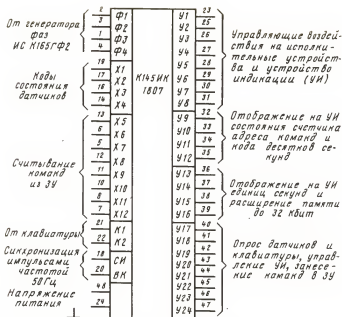 От генератора
фаз
ИС К165ГФ2
Коды
состояния
датчиков
Считывание
команд
из ЗУ
От клавиатуры
Синхронизация
импульсами
частотой
50Гц
Напряжение
питания
2
1
3
4
19
17
16
14
13
6
5
12
7
11
9
10
8
7
21
22
18
20
48
24
Ф1
Ф2
Ф3
Ф4
X1
X2
X3
X4
X5
X6
X7
X8
X9
X10
X11
X12
К1
К2
СИ
ВК
К145ИК
1807
У1
У2
У3
У4
У5
У6
У7
У8
У9
У10
У11
У12
У13
У14
У15
У16
У17
У18
У19
У20
У21
У22
У23
У24
23
25
26
27
28
29
30
31
32
33
34
35
36
37
38
39
40
41
42
43
44
45
46
47
Управляющие воздей-
ствия на исполни-
тельные устройст-
ва и устройство
индикации (УИ)
Отображение на УИ
состояния счетчика
адреса команд и
кода десятков се-
кунд
Отображение на УИ
единиц секунд и
расширение памяти
до 32 Кбит
Опрос датчиков и
клавиатуры, управ-
ление УИ, занесе-
ние команд в ЗУ